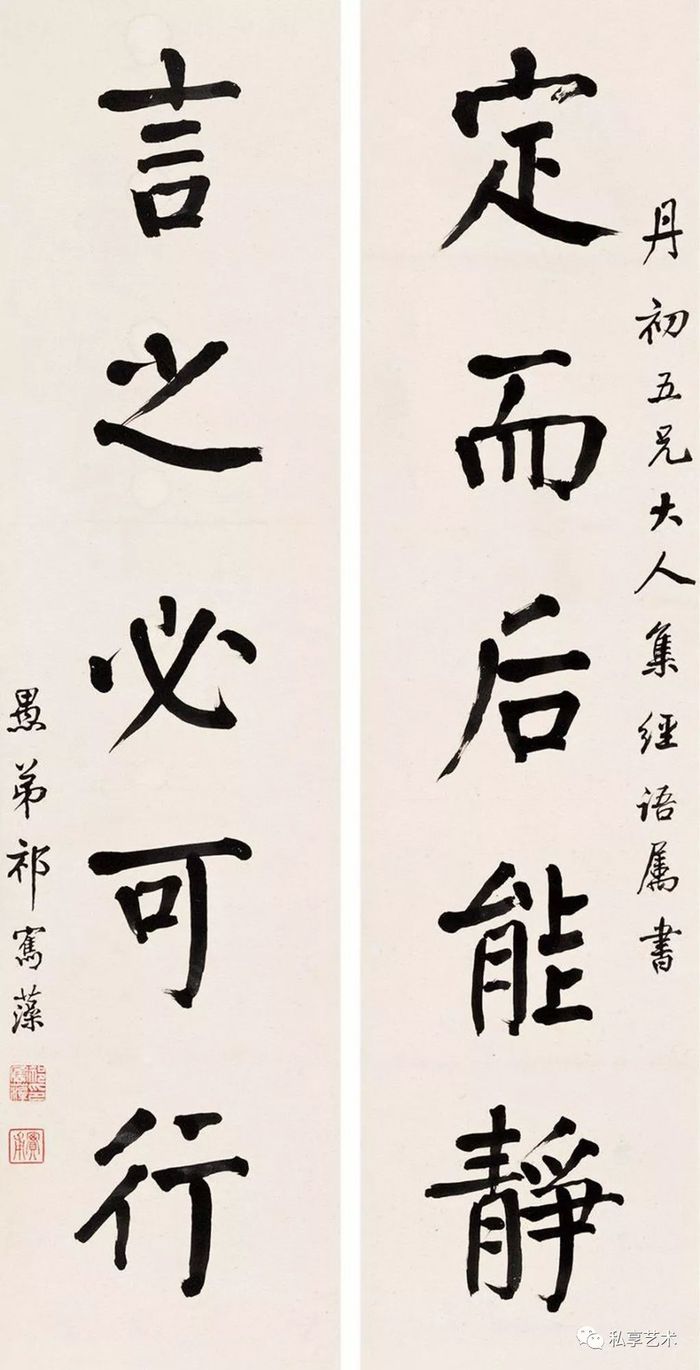 丹初五兄大人集經語属書
定而后能靜
言之必可行
愚弟祁寯藻
私享艺术